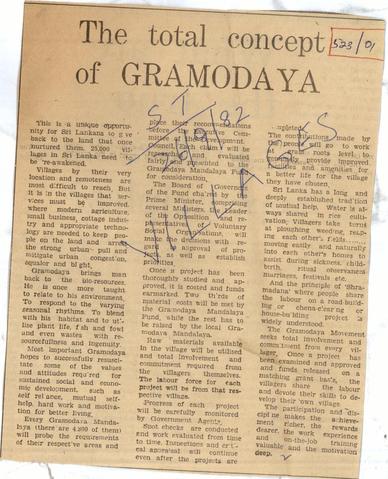 The total concept
of GRAMODAYA
523/01
This is a unique opportu-
nity for Sri Lankans to give
back to the land that once
nurtured them. 25,000 vil-
lages in Sri Lanka need to
be re-awakened.
Villages by their very
location and remoteness are
most difficult to reach. But
it is in the villages that ser-
vices must be improved,
where modern agriculture,
small business, cottage indus-
try and appropriate techno-
logy are needed to keep peo-
ple on the land and arrest
the strong urban pull and
mitigate urban congestion,
squalor and blight.
Gramodaya brings man
back to the bio-resources.
He is once more taught
to relate to his environment.
To respond to the varying
seasonal rhythms. To blend
with his habitat and to uti-
lise plant life, fish and fowl
and even wastes with re-
sourcefulness and ingenuity.
Most important Gramodaya
hopes to successfully resusci-
tate some of the values
and attitudes required for
sustained social and econo-
mic development, such as
self reliance, mutual self-
help, hard work and motiva-
tion for better living.
Every Gramoda Manda-
laya (there are 4,200 of them)
will probe the requirements
of their respective areas and
place their recommendations
before the Executive Com-
mittee of the Development
Council. Each claim will be
and evaluated
fairly and submitted to the
Gramodaya Mandalaya Fund
for consideration.
The Board of Governors
of the Fund chaired by the
Prime Minister,
several Ministers, the Leader
of the Opposition and re-
presentatives of Voluntary
Organisations, will
make decisions with re-
gard to approval of pro-
jects as well as establish
priorities.
Once a project has been
thoroughly studied and ap-
proved, it is costed and funds
earmarked. Two thirds of
material costs will be met by
the Gramodaya Mandalaya
Fund, while the rest has to
be raised by the local Gra-
modaya Mandalaya.
Raw materials available
in the village will be utilised
and total involvement and
commitment required from
the villagers themselves.
The labour force for each
project will be from that res-
pective village.
Progress of each project
will be carefully monitored
by Government Agency.
Spot checks are conducted
and work evaluated from time
to time. Inspections and criti-
cal appraisal will continue
even after the projects are
completed.
The contributions made by
the people will go to work
at grass roots level to
provide improved
amenities and amenities for
a better life for the village
they have chosen.
Sri Lanka has a long and
deeply established tradition
of mutual help. Water is al-
ways shared in rice culti-
vation; Villagers take turns
at ploughing, weeding, reap-
ing each other's fields
moving easily and naturally
into each other's houses to
assist during sickness, child-
birth, ritual observances
marriages, festivals etc.
And the principle of 'Shra-
madana' where people share
the labour on a road-build-
ing or chena-clearing or
house-building project is
widely understood.
The Gramodaya Movement
seeks total involvement and
commitment from every vil-
lager. Once a project has
been examined and approved
and funds released on a
matching grant basis, the
villagers share the labour
and devote their skills to de-
velop their own village.
The participation and dis-
cipline makes the achieve-
ment richer, the rewards
dearer, the work experience
and on-the-job training
valuable and the motivation
deep.
S T
82
VILLAGES